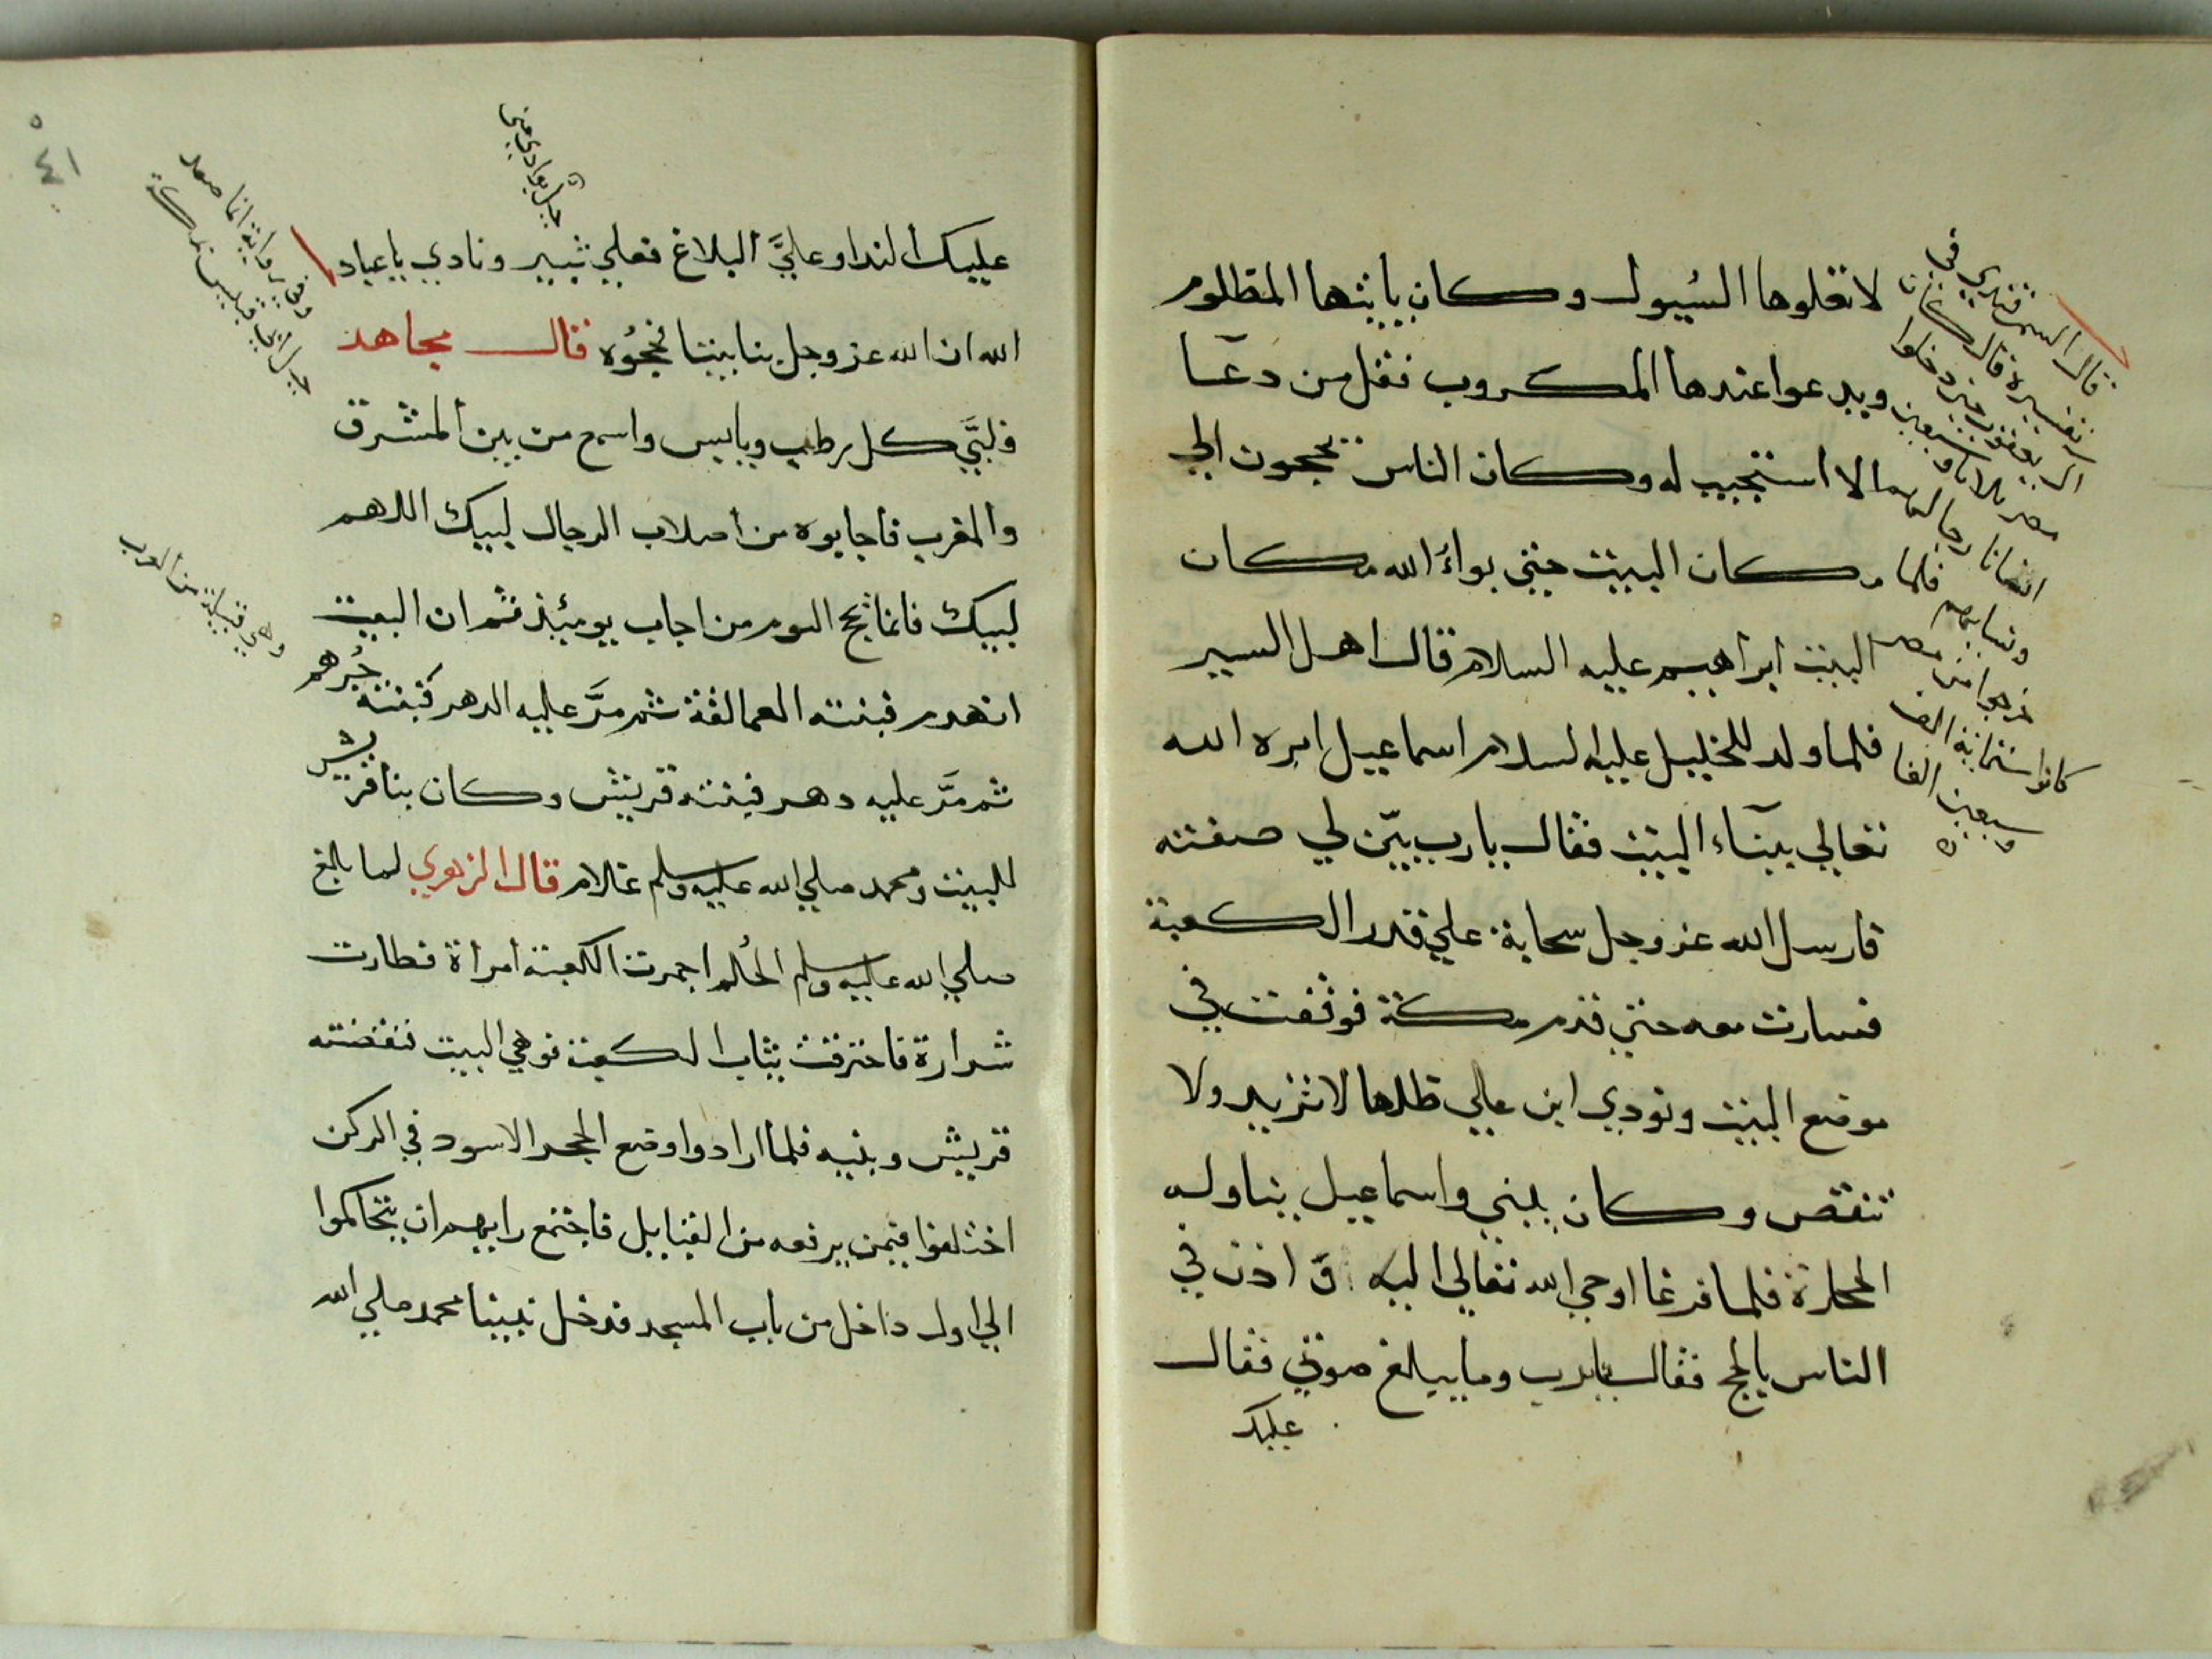 لا تعلوها السُيول وكان ياتيها المظلوم
ويدعوا عندها المكروب فقل من دعا
الا استجيب له وكان الناس يحجون الي
مكان البيت حتي بواء الله مكان
البيت ابراهيم عليه السلام قال اهل السير
فلما ولد للخليل عليه السلام اسماعيل امره الله
تعالي ببنآء البيت فقال يارب بيّن لي صفته
فارسل الله عز وجل سحابة علي قدر الكعبة
فسارت معه حتي قدم مكة فوقفت في
موضع البيت ونودي ابن علي ظلها لا تزيد ولا
تنقص وكان يبني واسماعيل يناوله
الحجارة فلما فرغا اوحي الله تعالي اليه ان اذن في
الناس بالحج فقال يارب وما يبلغ صوتي فقال
عليك
قال السمرقندي في
تفسيره قال كان
ال يعقوب حين دخلوا
مصر ثلاثا وسبعين
انسانا رجالهم
ونسايهم فلما
خرجوا من مصر
كانوا ستماية الف
وسبعين الفا
٤١
عليك الندا وعليَّ البلاغ فعلي ثبير ونادي يا عباد
الله ان الله عز وجل بنا بيتا فحجُوه قال مجاهد
فلبَّي كل رطب ويابس واسمع من بين المشرق
والمغرب فاجابوه من اصلاب الرجال لبيك اللهم
لبيك فانما يحج اليوم من اجاب يومئذ ثم ان البيت
انهدم فبنته العمالقة ثم مرَّ عليه الدهر فبنته جُرهم
ثم مرَّ عليه دهر فبنته قريش وكان بنا قريش
للبيت ومحمد صلي الله عليه وسلم غلام قال الزهري لما بلغ
صلي الله عليه وسلم الحُلم اجمرت الكعبة امرأة فطارت
شرارة فاحترقت ثياب الكعبة فوهي البيت فنقضته
قريش وبنيه فلما ارادوا وضع الحجر الاسود في الركن
اختلفوا فيمن يرفعه من القبايل فاجتمع رايهم ان يتحاكموا
الي اول داخل من باب المسجد فدخل نبينا محمد صلي الله
جبل بوادي مني
وفي رواية انما صعد
جبل ابي قبيس بمكة
وهي قبيلة من العرب